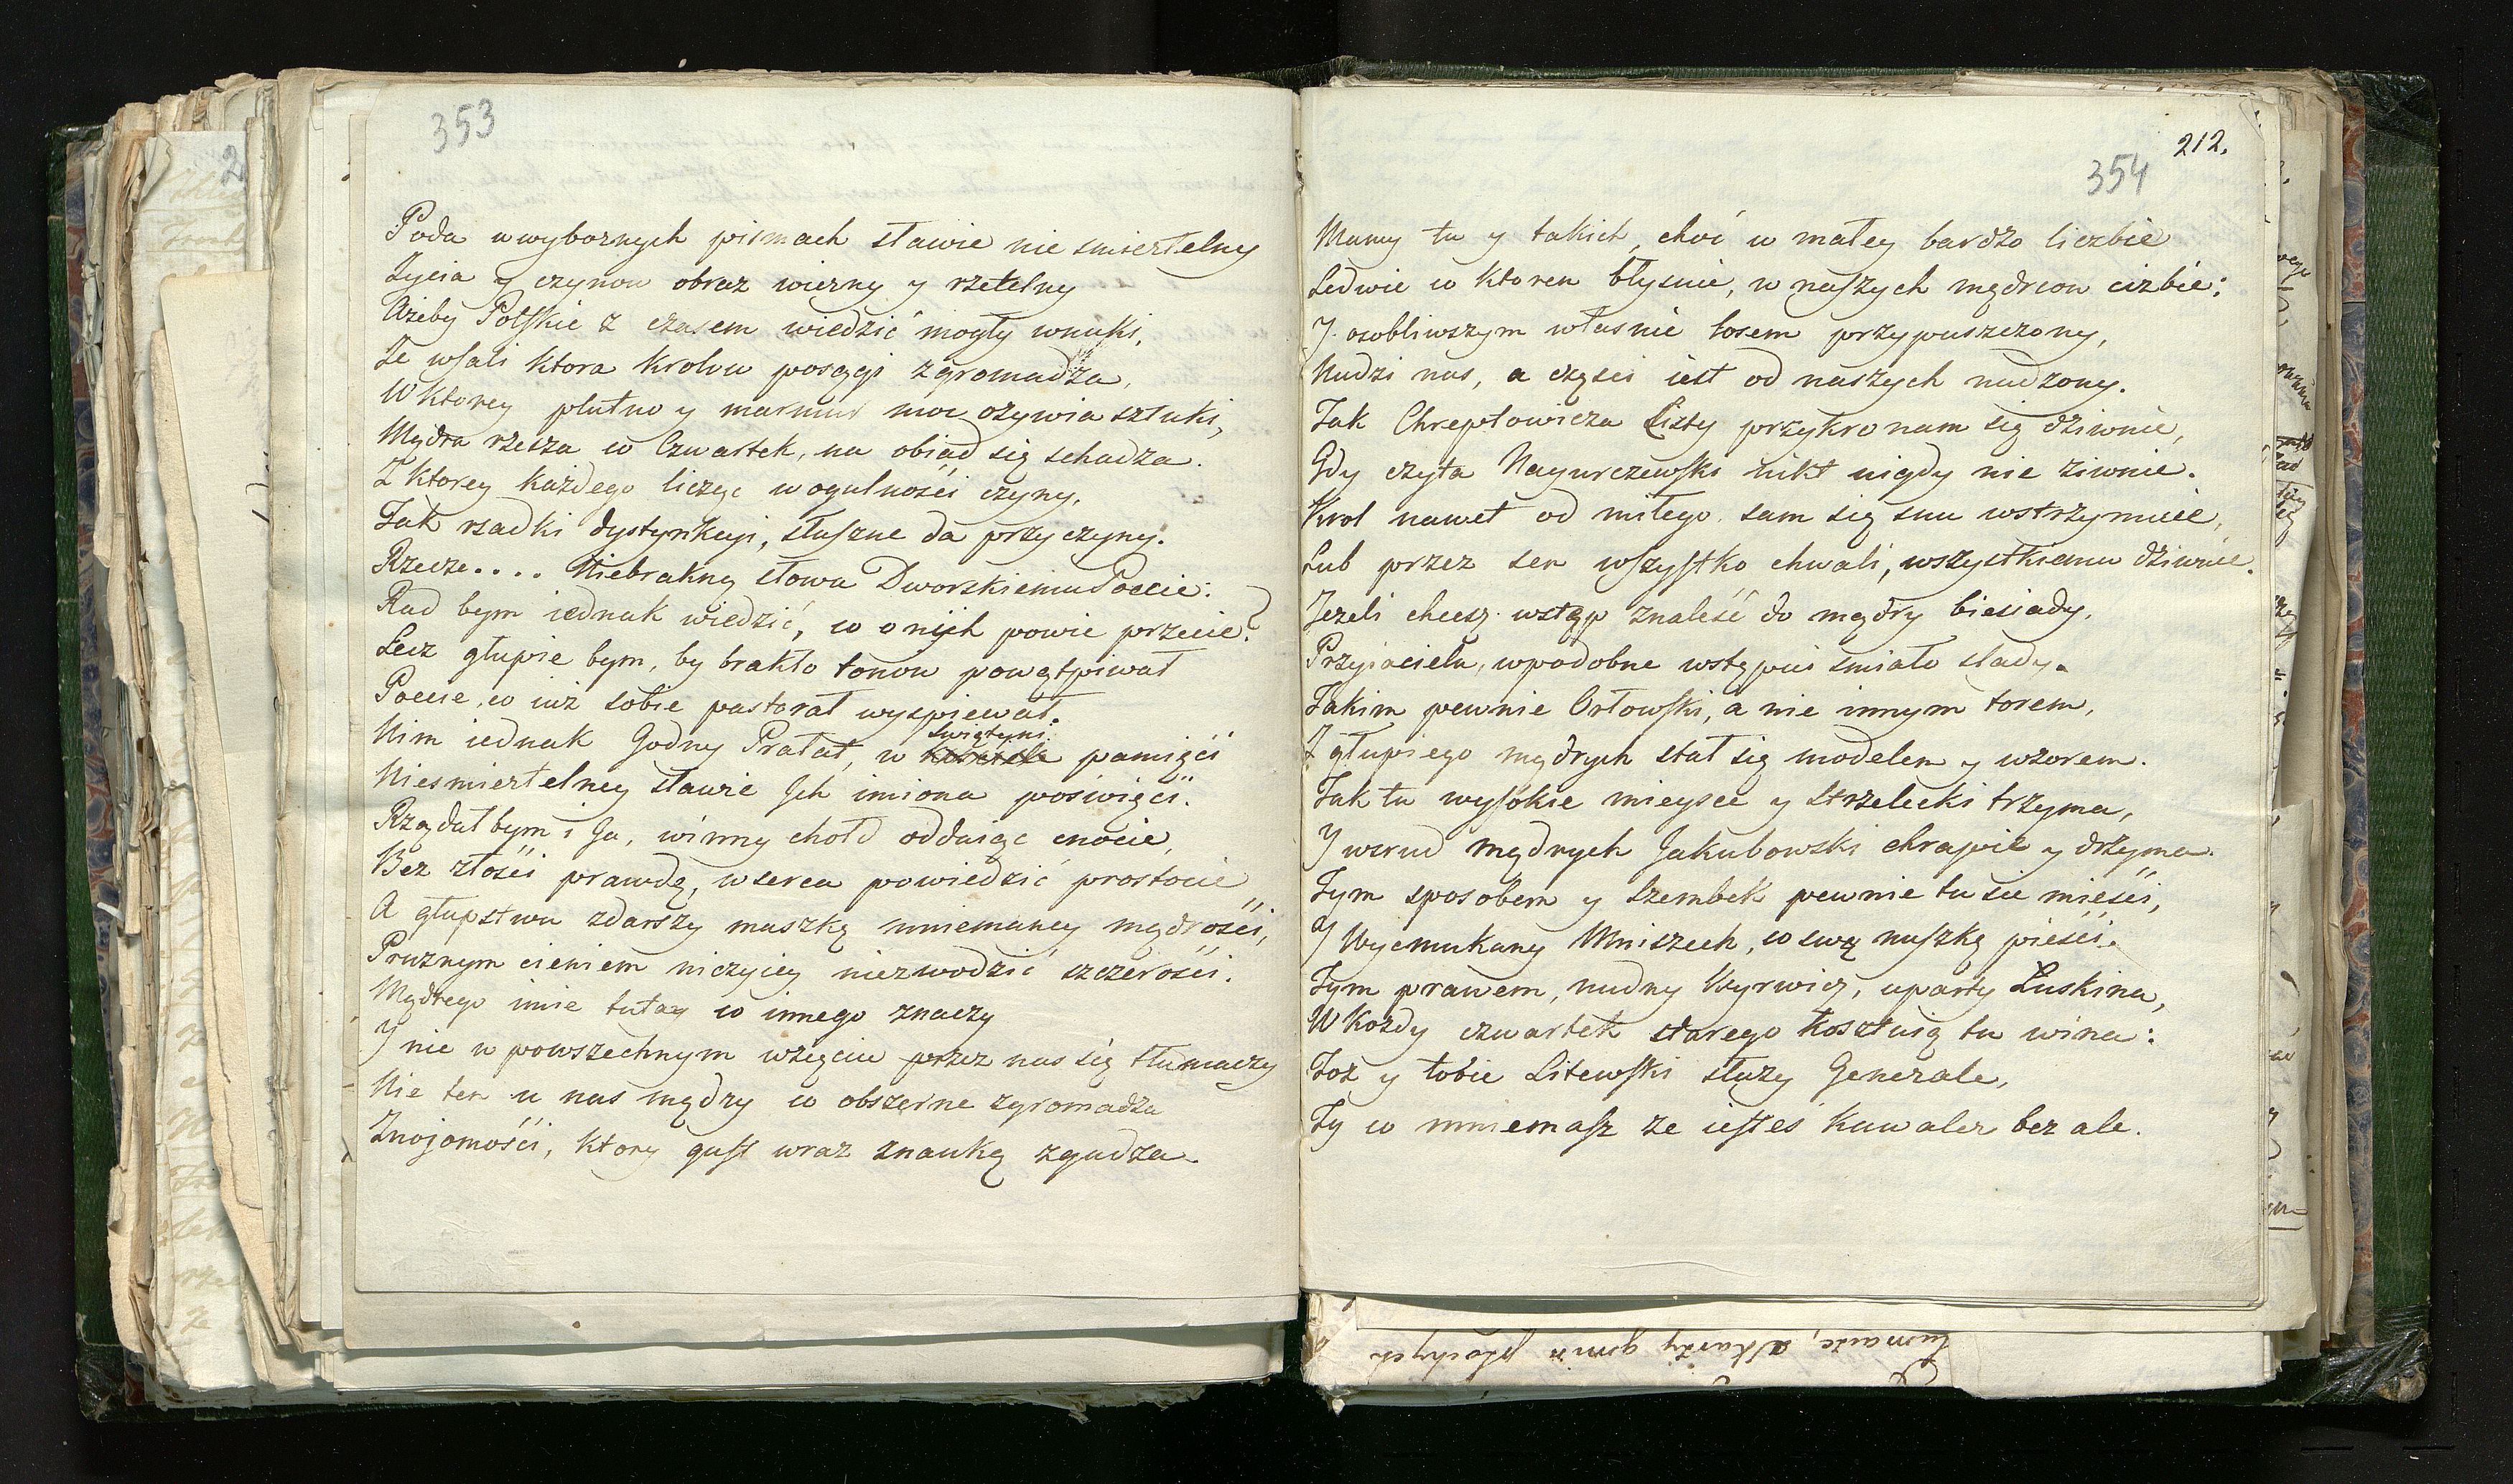 353
Poda w wybornych pismach sławie nie smiertelny
Zycia y czynow obraz wierny y rzetelny
Ażeby Polskie z czasem wiedzić mogły wnuki,
Ze wsali ktora Krolow posągi zgromadza,
W ktorey płutno y marmur moc ozywia sztuki,
Mądra rzesza w Czwartek, na obiad się schadza.
Z ktorey każdego licząc w ogulności czyny,
Tak rzadki dystynkcyi, słuszne da przyczyny.
Rzecze.... Niebrakną słowa Dworskiemu Poecie:
Rad bym iednak wiedzić, co o nich powie przecie?
Lecz głupie bym, by brakło tonow powątpiwał
Poecie, co iuż sobie pastorał wyspiewał.
Swiątyni
Nim iednak Godny Prałat, w kosciele pamięci
Niesmiertelney sławie Jch imiona poświęci.
Rządałbym i Ja, winny chołd oddaiąc cnocie,
Bez złości prawdę, w serca powiedzić prostocie
A głupstwu zdarszy maszkę mniemaney mądrości,
Pruznym cieniem niczyiey niezwodzić szczerości.
Mądrego imie tutay co innego znaczy
Y nie w powszechnym wzięciu przez nas się tłumaczy
Nie ten u nas mądry co obszerne zgromadza
Znajomości, ktory gust wraz z nauką zgadza.
212.
354
Mamy tu y takich, choć w małey bardzo liczbie
Ledwie co ktoren błysnie, w naszych mędrcow cizbie:
Y osobliwszym własnie losem przypuszczony,
Nudzi nas, a częsci iest od naszych nudzony.
Tak Chreptowicza Listy przykro nam się dziwnie,
Gdy czyta Nagurczewski nikt nigdy nie ziwnie.
Krol nawet od miłego sam się snu wstrzymuie,
Lub przez sen wszystko chwali, wszystkiemu dziwuie.
Jezeli chcesz wstęp znaleść do mądry biesiady,
Przyiacielu, w podobne wstępui smiało slady.
Takim pewnie Orłowski, a nie innym torem,
Z głupiego mądrych stał się modelem y wzorem.
Tak tu wysokie mieysce y Strzelecki trzyma,
Y wsrud mądrych Jakubowski chrapie y drzyma.
Tym sposobem y Szembek pewnie tu sie mieści,
Y Wycmukany Mniszech, co swą maszkę pieści.
Tym prawem, nudny Wyrwicz, uparty Łuskina,
W Kożdy czwartek starego kosztuią tu wina:
Toż y tobie Litewski słuzy Generale,
Ty co mniemasz ze iesteś kawaler bez ale.